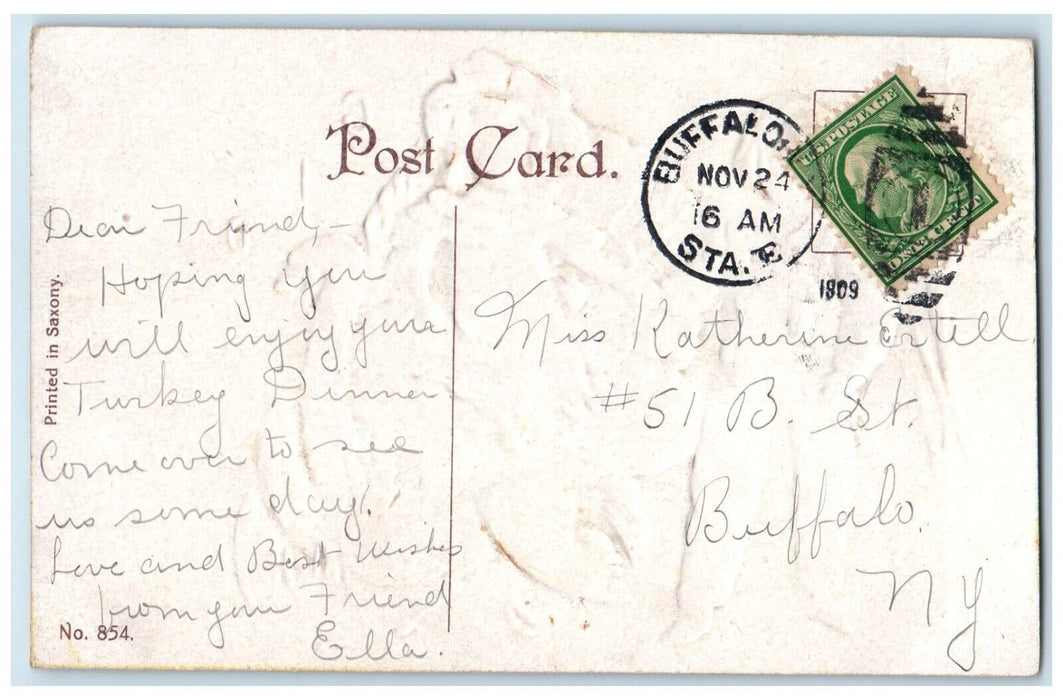 Post Card.
BUFFALO,
NOV 24
6 AM
STA. E
1909
U.S. POSTAGE
Printed in Saxony.
Dear Friend,—
Hoping you
will enjoy your
Turkey Dinner
Come over to see
us some day.
Love and Best Wishes
from your Friend
Ella.
No. 854.
Miss Katherine Ertell
#51 B. St.
Buffalo.
NY